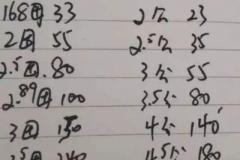 168回 33 2公 23
2回 55 2.5公 35
2.5回 80 3公 55
2.89回 100 3.5公 80
3回 130 4公 140
180